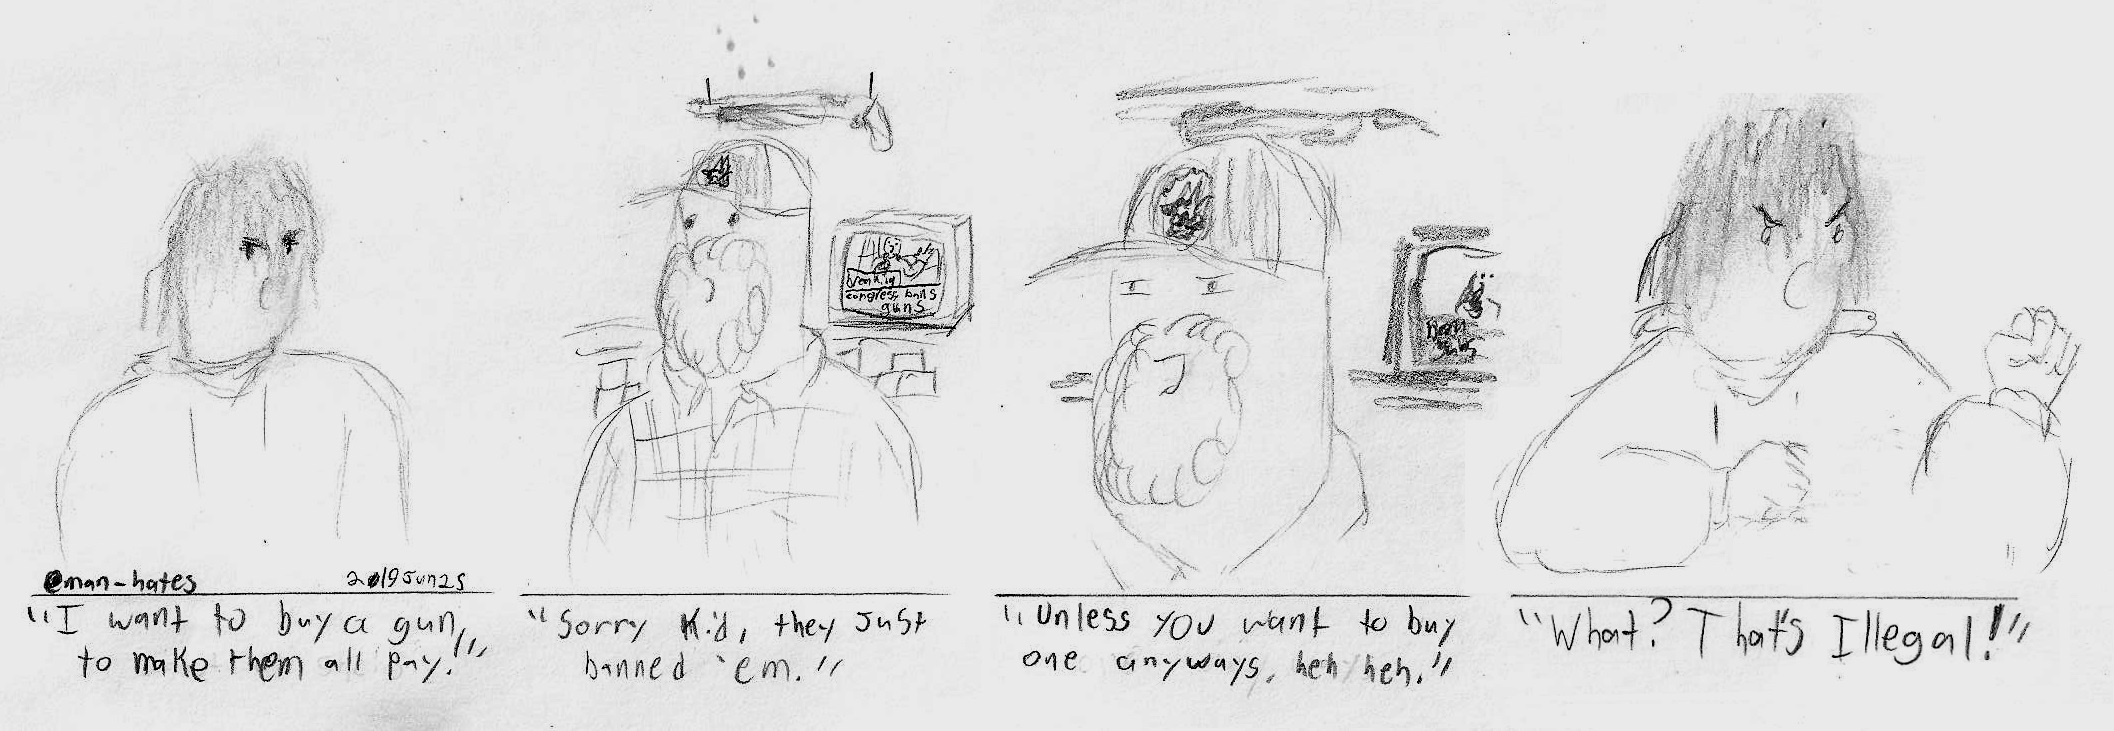 @man-hates
2019Jun25
"I want to buy a gun,
to make them all pay."
congress bans
guns
"Sorry kid, they just
banned 'em."
"Unless you want to buy
one anyways, heh heh."
"What? That's Illegal!"